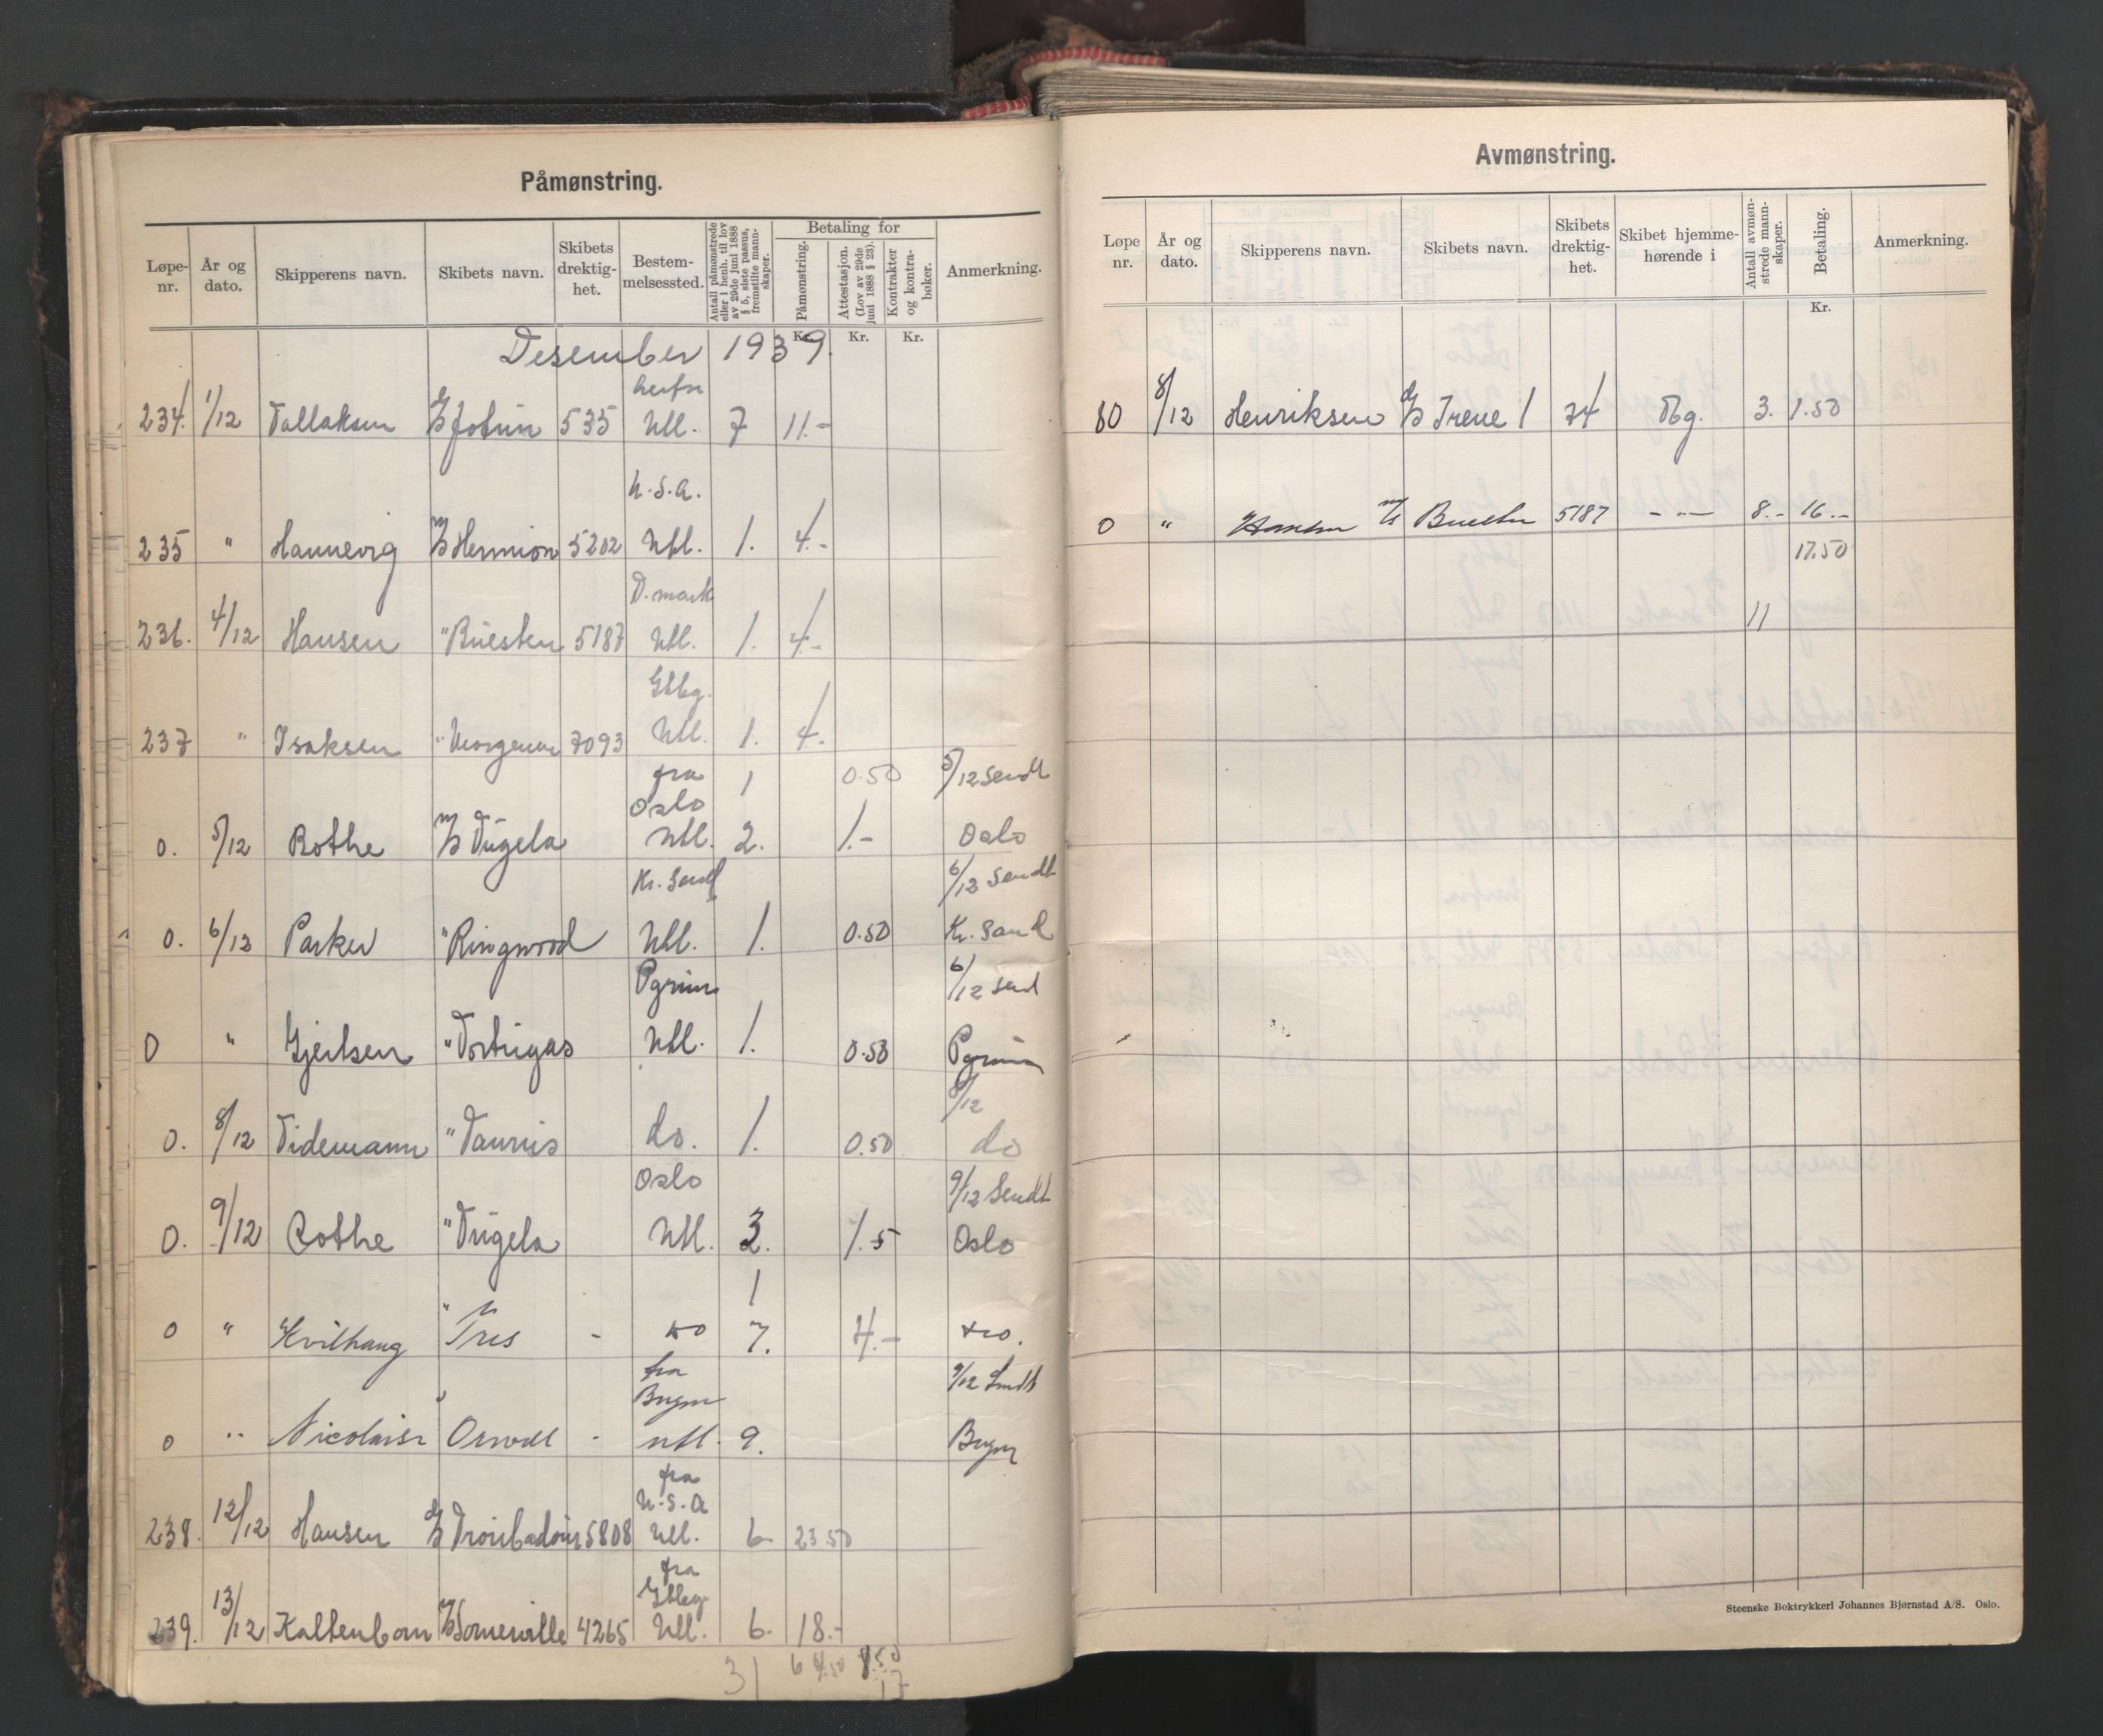 Påmønstring.
Løpe-nr. År og dato. Skipperens navn. Skibets navn. Skibets drektig-het. Bestem-melsessted. Antall påmønstrede eller i henh. til lov av 29de juni 1888 § 5, siste passus, fremstilte mann-skaper. Betaling for Påmønstring. Attestasjon. (Lov av 29de juni 1888 § 23). Kontrakter og kontra-bøker. Anmerkning.
Kr. Kr. Kr.
Desember 1939.
herfra
234. 1/12 Tallaksen D/S Jotun 535 Utl. 7 11.-
U.S.A.
235 " Hannevig M/S Hermion 5202 Utl. 1. 4.-
D.mark
236. 4/12 Hansen " Buesten 5187 Utl. 1. 4.-
Gtbg.
237 " Isaksen " 7093 Utl. 1. 4.-
fra 1 0.50 5/12 Sendt
Oslo
0. 5/12 Bothe M/S Tugela Utl. 2. 1.- Oslo
Kr. Sand 6/12 Sendt
0. 6/12 Parker " Ringwood Utl. 1. 0.50 Kr. Sand
Pgrunn 6/12 Send
0 " Gjertsen " Tortugas Utl. 1. 0.50 Pgrunn
8/12
0. 8/12 Tidemann " Taurus do. 1. 0.50 do
Oslo 9/12 Sendt
0. 9/12 Bothe " Tugela Utl. 3. 1.5 Oslo
1
0 " Kvilhaug " Tris - do 7. 4.- do.
fra 9/12 Sendt
Bergen
0 " Nicolaisen " - utl. 9. Bergen
fra
U.S.A
238. 12/12 Hansen D/S Troubadour 5808 Utl. 6 23.50
fra
Gtbg
239. 13/12 Kaltenborn M/S Somerville 4265 Utl. 6. 18.-
31 64.50 8.50
17
Avmønstring.
Løpe nr. År og dato. Skipperens navn. Skibets navn. Skibets drektig-het. Skibet hjemme-hørende i Antall avmøn-strede mann-skaper. Betaling. Anmerkning.
Kr.
80 8/12 Henriksen D/S Irene I 74 Tbg. 3. 1.50
0 " Hansen M/S Buesten 5187 - " - 8.- 16.-
17.50
11
Steenske Boktrykkeri Johannes Bjørnstad A/S. Oslo.